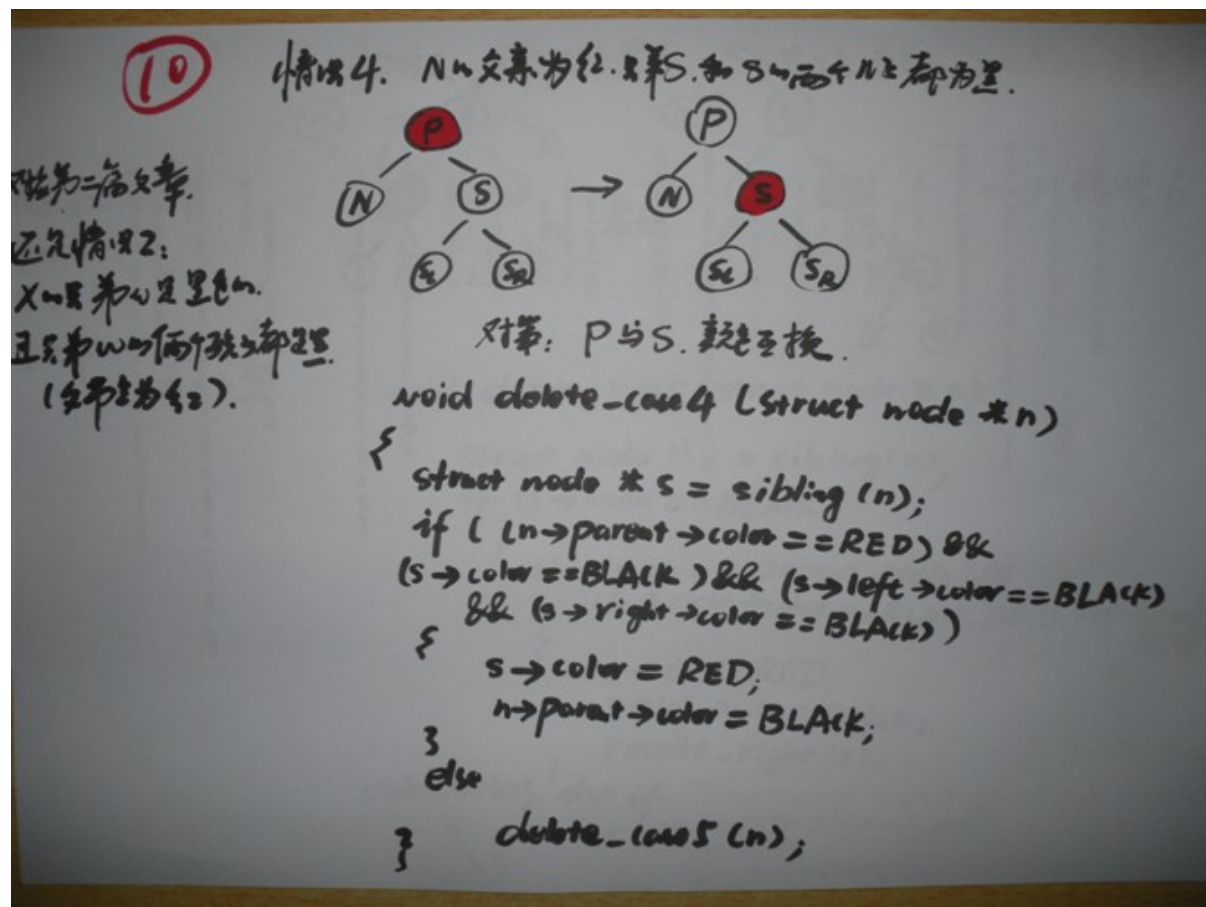 10
情况4. N的父亲为红.兄弟S.和S的两个儿子都为黑.
P
P
N
S
→
N
S
SL
SR
SL
SR
对应第二篇文章.
还是情况2:
X的兄弟w是黑色的.
且兄弟w的俩个孩子都是黑
(全部变为红).
对策: P与S.颜色互换.
void delete_case4 (struct node *n)
{
struct node * s = sibling (n);
if ( (n->parent->color == RED) &&
(s->color == BLACK ) && (s->left->color == BLACK)
&& (s->right->color == BLACK) )
{
s->color = RED;
n->parent->color = BLACK;
}
else
delete_case5 (n);
}